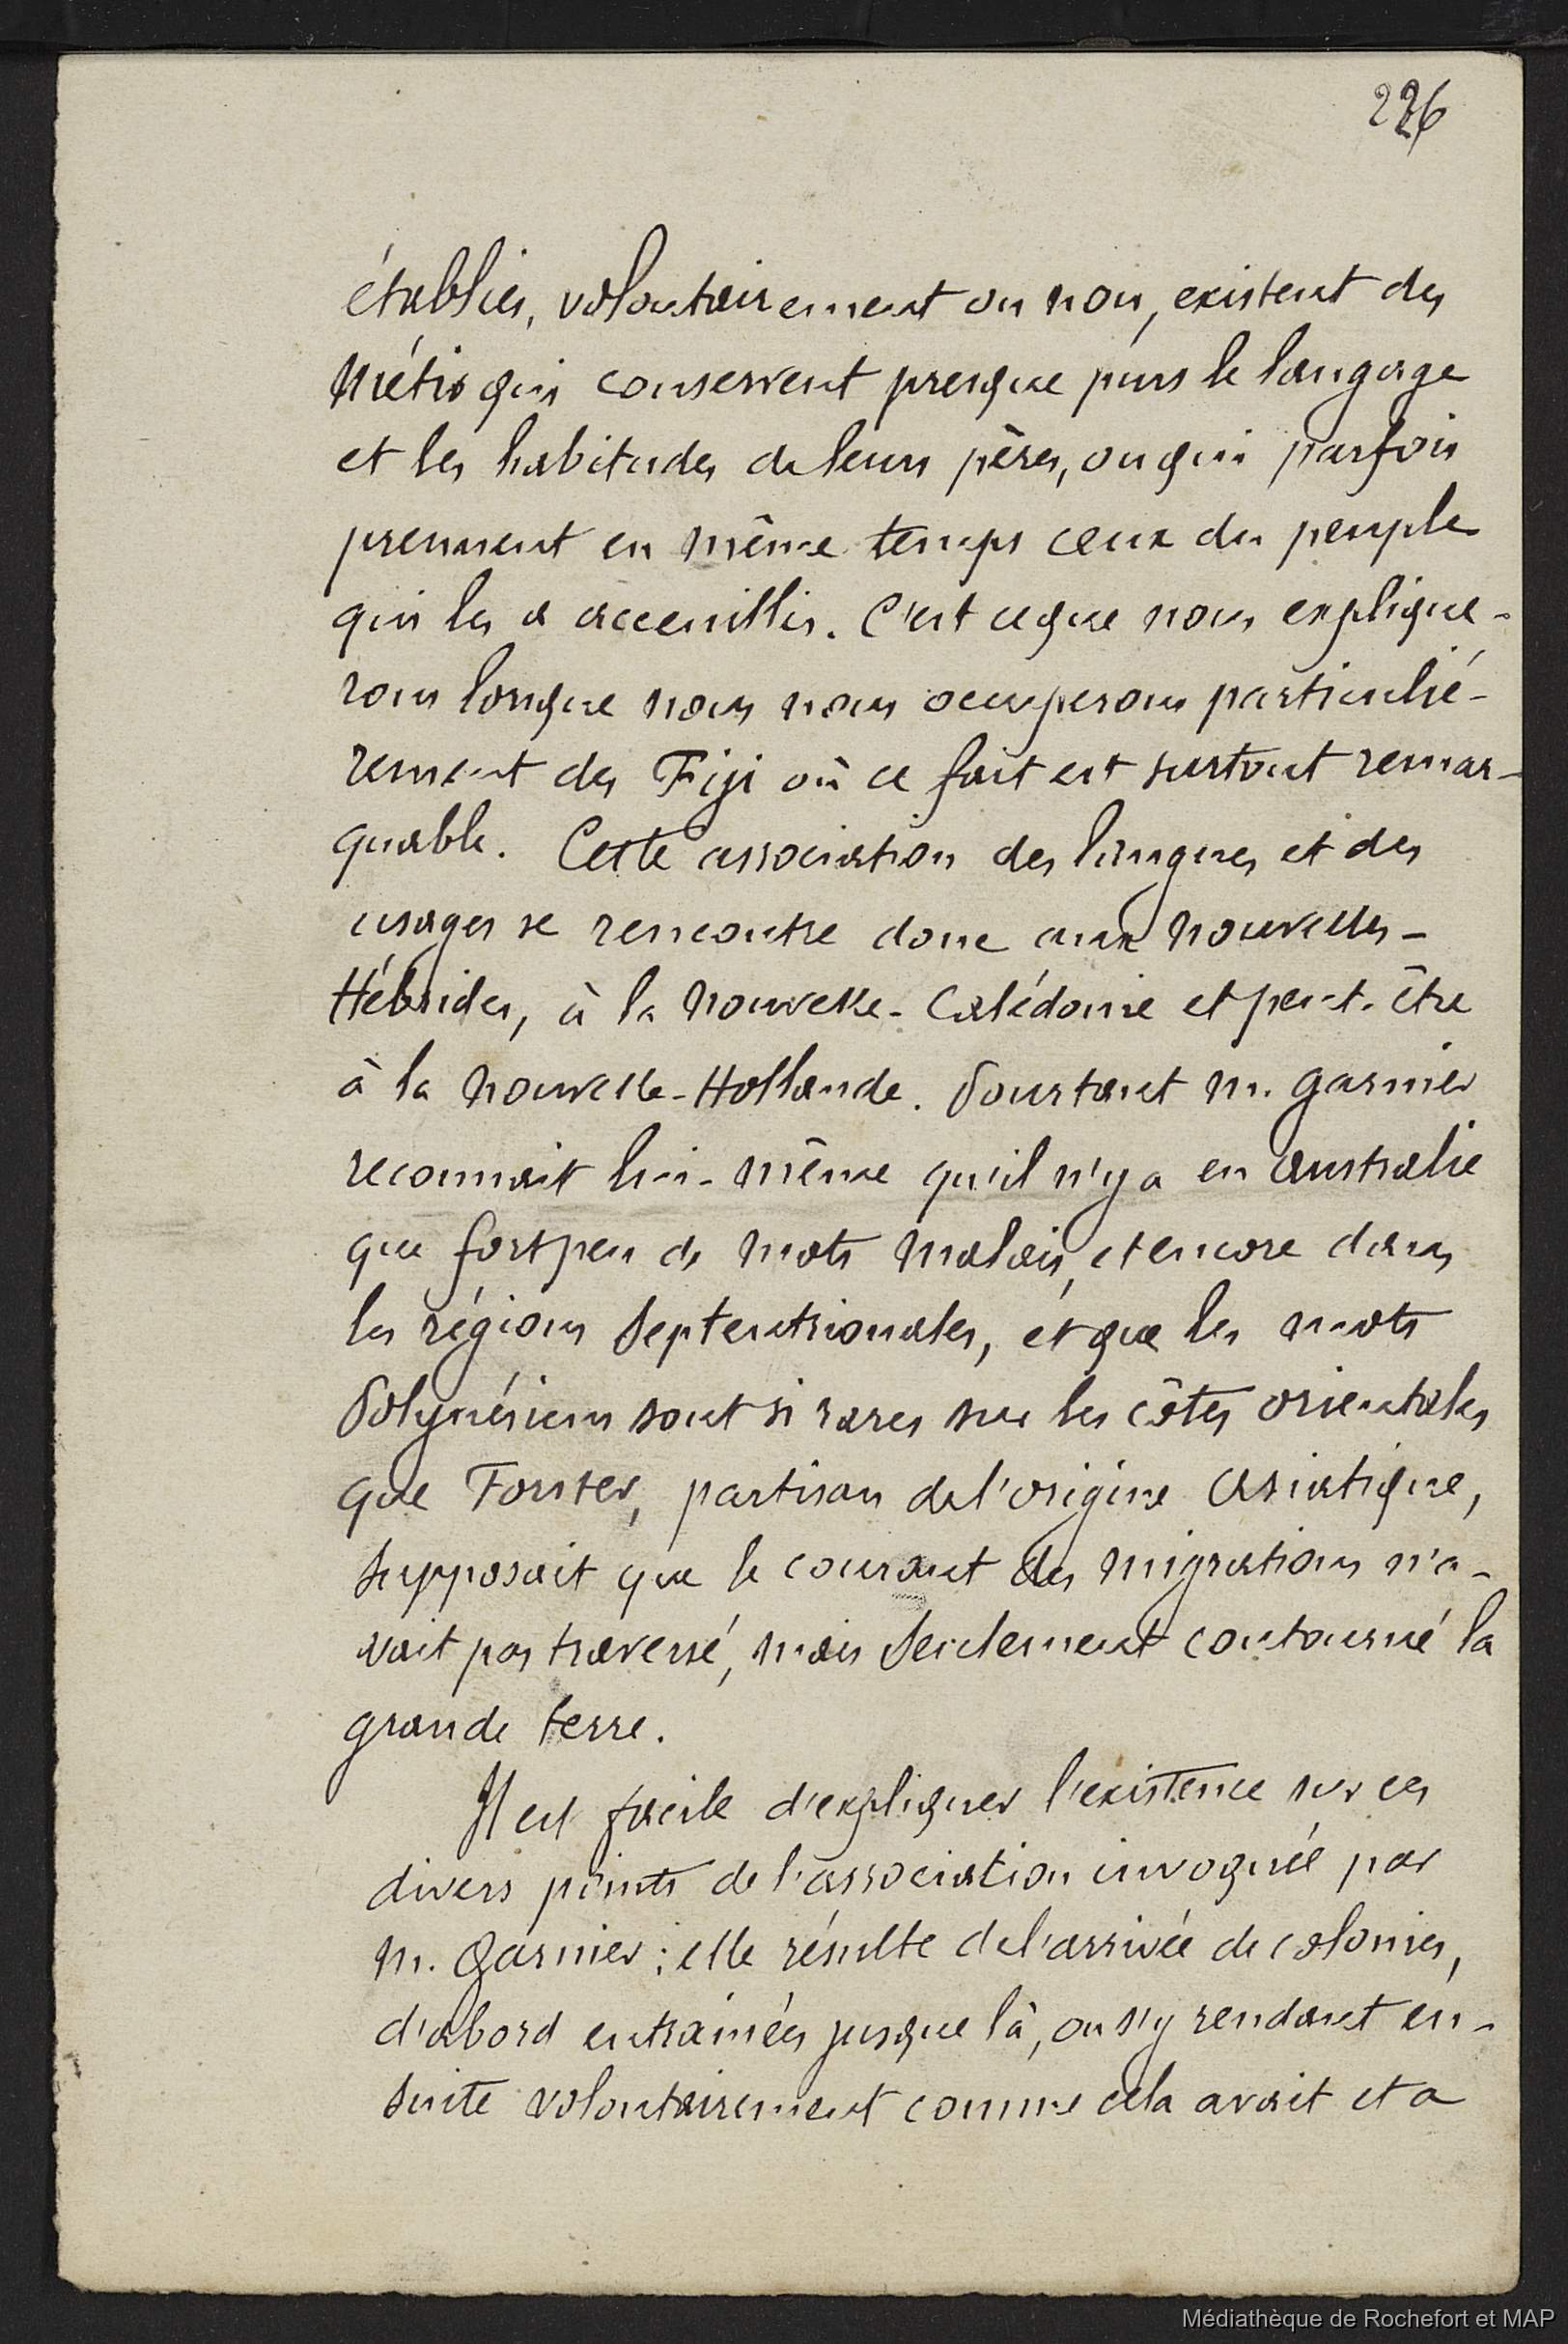 226
établies, volontairement ou non, existent des
Métis qui conservent presque purs le langage
et les habitudes de leurs pères, ou qui parfois
prennent en même temps ceux du peuple
qui les a accueillis. C'est ce que nous explique-
rons lorsque nous nous occuperons particuliè-
rement des Fiji où ce fait est surtout remar-
quable. Cette association des langues et des
usages se rencontre donc aux Nouvelles-
Hébrides, à la Nouvelle-Calédonie et peut-être
à la Nouvelle-Hollande. Pourtant M. Garnier
reconnait lui-même qu'il n'y a en Australie
que fort peu de mots Malais, et encore dans
les régions Septentrionales, et que les mots
Polynésiens sont si rares sur les côtes orientales
que Forster, partisan de l'origine Asiatique,
Supposait que le courant des migrations n'a-
vait pas traversé, mais Seulement contourné la
grande terre.
Il est facile d'expliquer l'existence sur ces
divers points de l'association invoquée par
M. Garnier; elle résulte de l'arrivée de colonies,
d'abord entrainées jusque là, ou s'y rendant en-
suite volontairement comme cela avait et a
Médiathèque de Rochefort et MAP